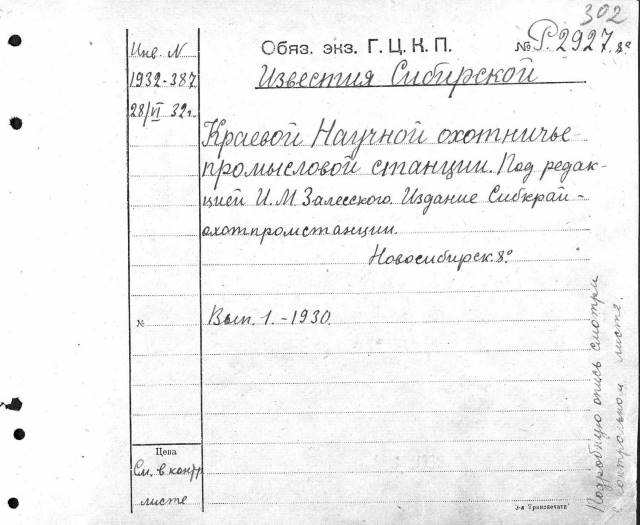 302
Инв. N
Обяз. экз. Г. Ц. К. П.
№ Р.2927. 8°
1932-387
Известия Сибирской
28/VI 32 г.
Краевой Научной охотничье-
промысловой станции. Под редак-
цией И. М. Залесского. Издание Сибкрай-
охотпромстанции.
Новосибирск. 8°
№
Вып. 1. - 1930.
Цена
См. в контр
листе
Подробную опись смотри
в контрольном листе.